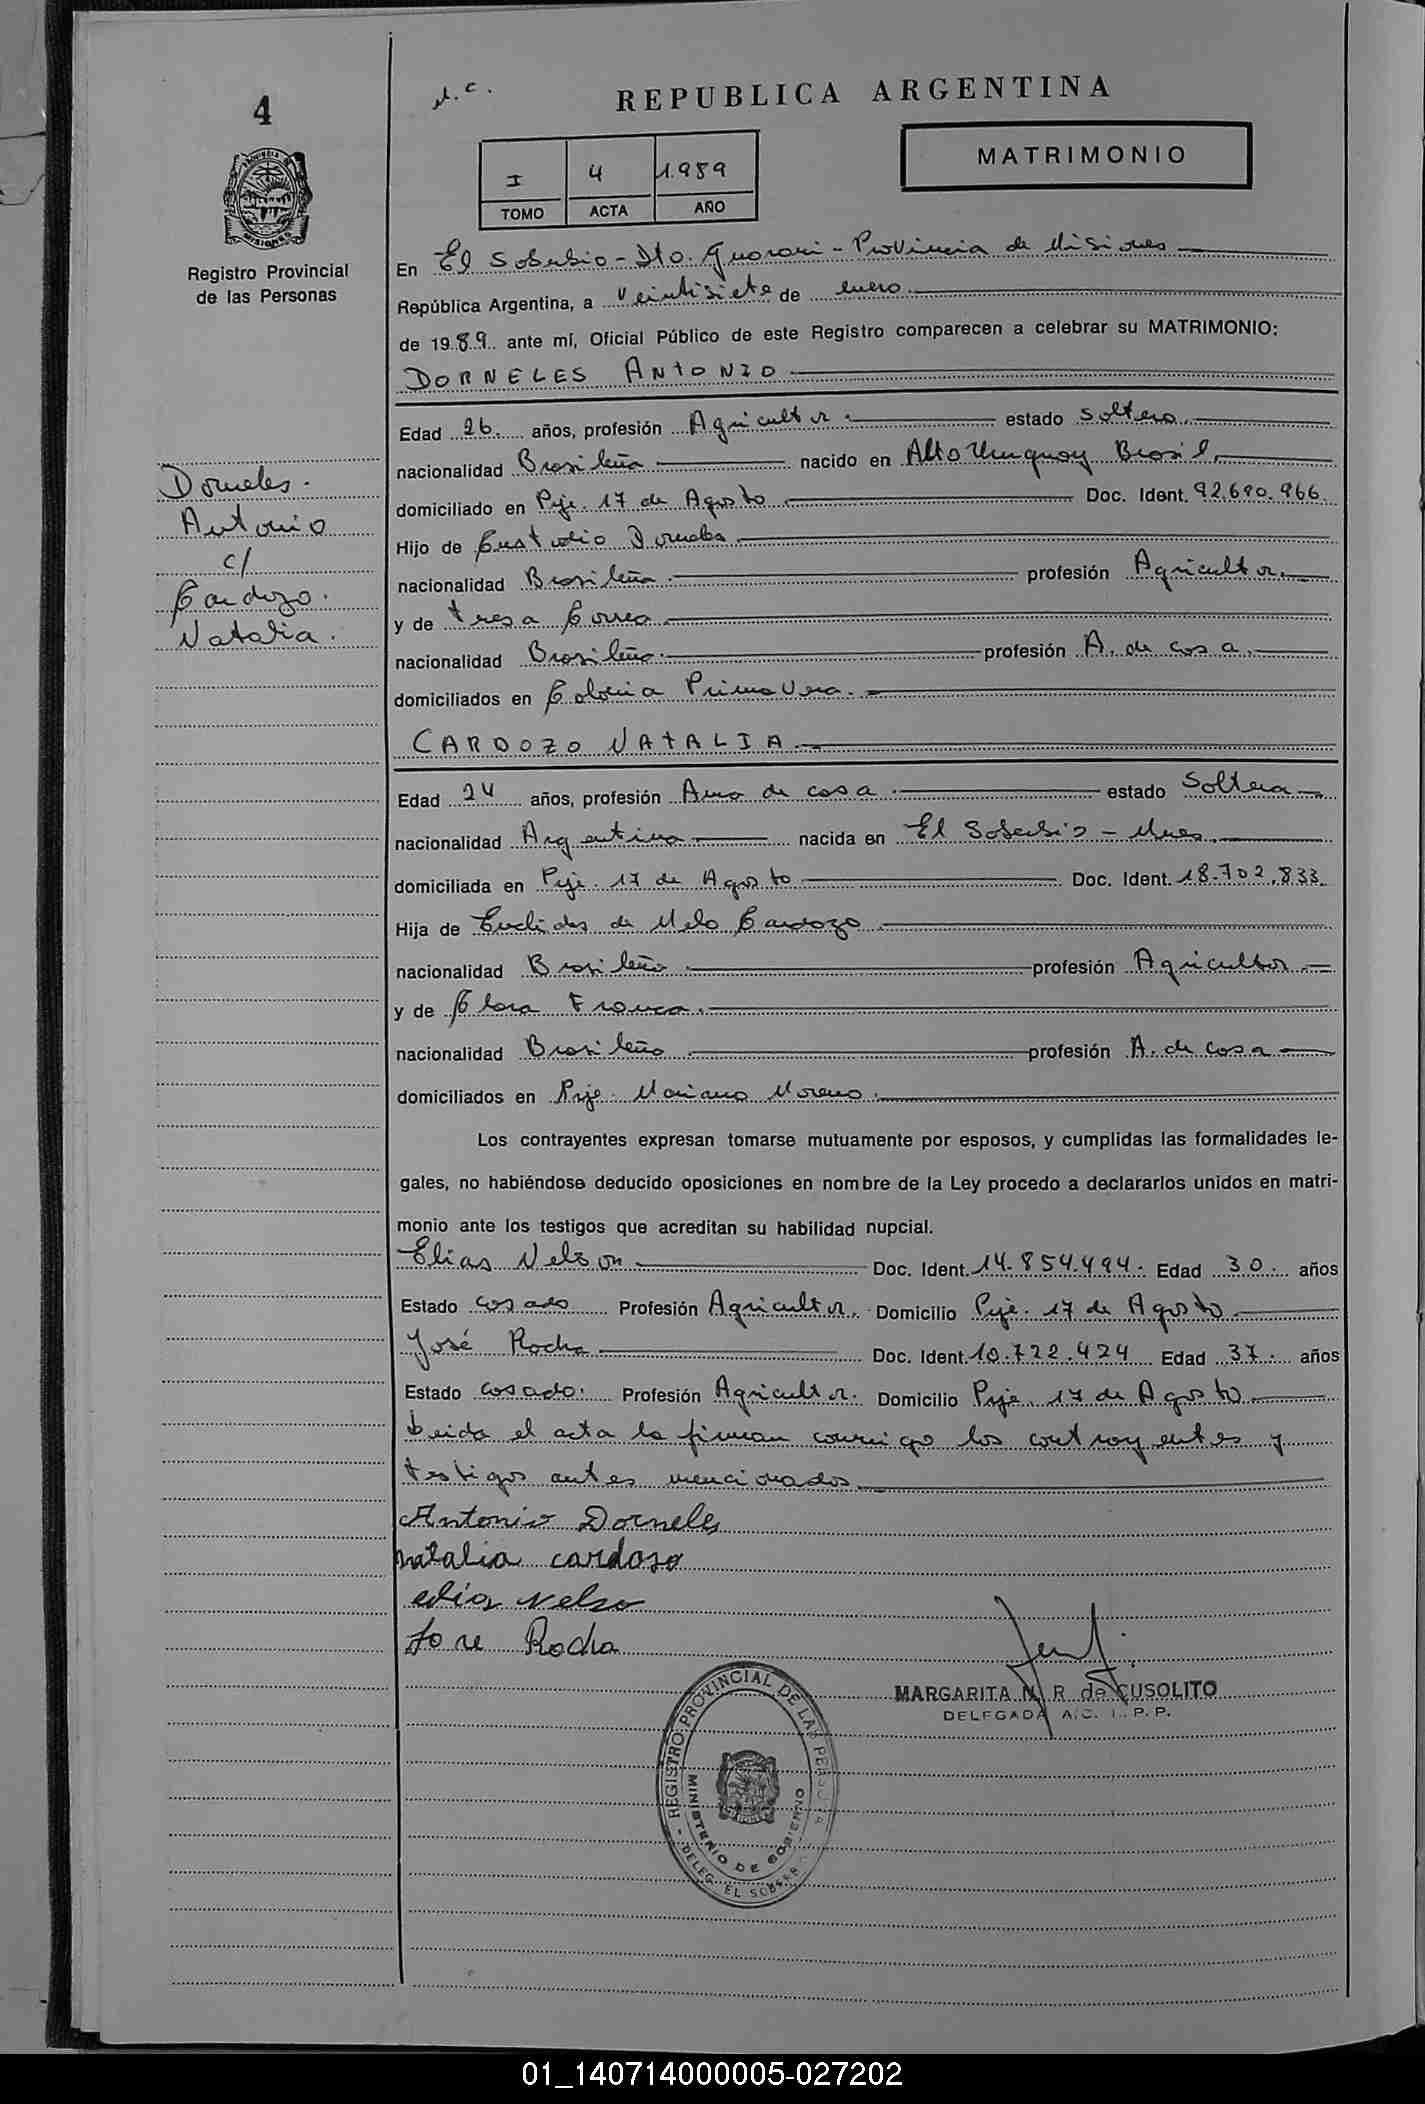 4
REPUBLICA ARGENTINA
MATRIMONIO
I 4 1.989
TOMO ACTA AÑO
PROVINCIA DE
MISIONES
Registro Provincial
de las Personas
En El Soberbio - Dto. Guarani - Provincia de Misiones
República Argentina, a Veintisiete de enero
de 1989 ante mí, Oficial Público de este Registro comparecen a celebrar su MATRIMONIO:
DORNELES ANTONIO
Edad 26. años, profesión Agricultor. estado Soltero.
nacionalidad Brasileña nacido en Alto Uruguay Brasil.
domiciliado en Pje. 17 de Agosto Doc. Ident. 92.690.966.
Hijo de Custodio Dorneles
nacionalidad Brasileña profesión Agricultor.
y de tresa Correa
nacionalidad Brasileña. profesión A. de casa.
domiciliados en Colonia Primavera.
CARDOZO NATALIA
Edad 24 años, profesión Ama de casa. estado Soltera
nacionalidad Argentina nacida en El Soberbio - Mnes.
domiciliada en Pje. 17 de Agosto Doc. Ident. 18.702.833.
Hija de Euclides de Melo Cardozo
nacionalidad Brasileña profesión Agricultor.
y de Clara Franca.
nacionalidad Brasileña profesión A. de casa
domiciliados en Pje. Mariano Moreno.
Dorneles.
Antonio
c/
Cardozo.
Natalia.
Los contrayentes expresan tomarse mutuamente por esposos, y cumplidas las formalidades le-
gales, no habiéndose deducido oposiciones en nombre de la Ley procedo a declararlos unidos en matri-
monio ante los testigos que acreditan su habilidad nupcial.
Elias Nelson Doc. Ident. 14.854.494. Edad 30. años
Estado Casado Profesión Agricultor. Domicilio Pje. 17 de Agosto
José Rocha Doc. Ident. 10.722.424 Edad 37. años
Estado Casado. Profesión Agricultor. Domicilio Pje. 17 de Agosto
Leida el acta la firman conmigo los contrayentes y
testigos antes mencionados
Antonio Dorneles
natalia cardoso
elias nelso
Jose Rocha
MARGARITA N. R. de CUSOLITO
DELEGADA
REGISTRO PROVINCIAL DE LAS PERSONAS
MINISTERIO DE GOBIERNO
DELEG. EL SOBERBIO
01_140714000005-027202